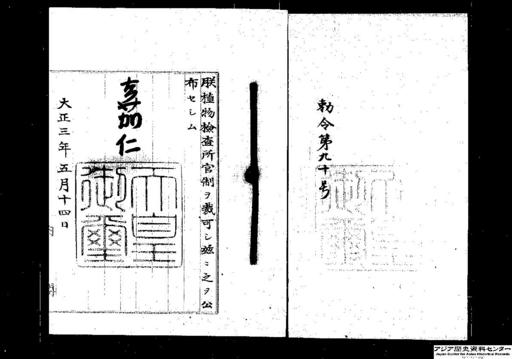 勅令第九十号
朕植物検査所官制ヲ裁可シ茲ニ之ヲ公
布セシム
嘉仁
天皇
御璽
大正三年五月十四日
アジア歴史資料センター
Japan Center for Asian Historical Records